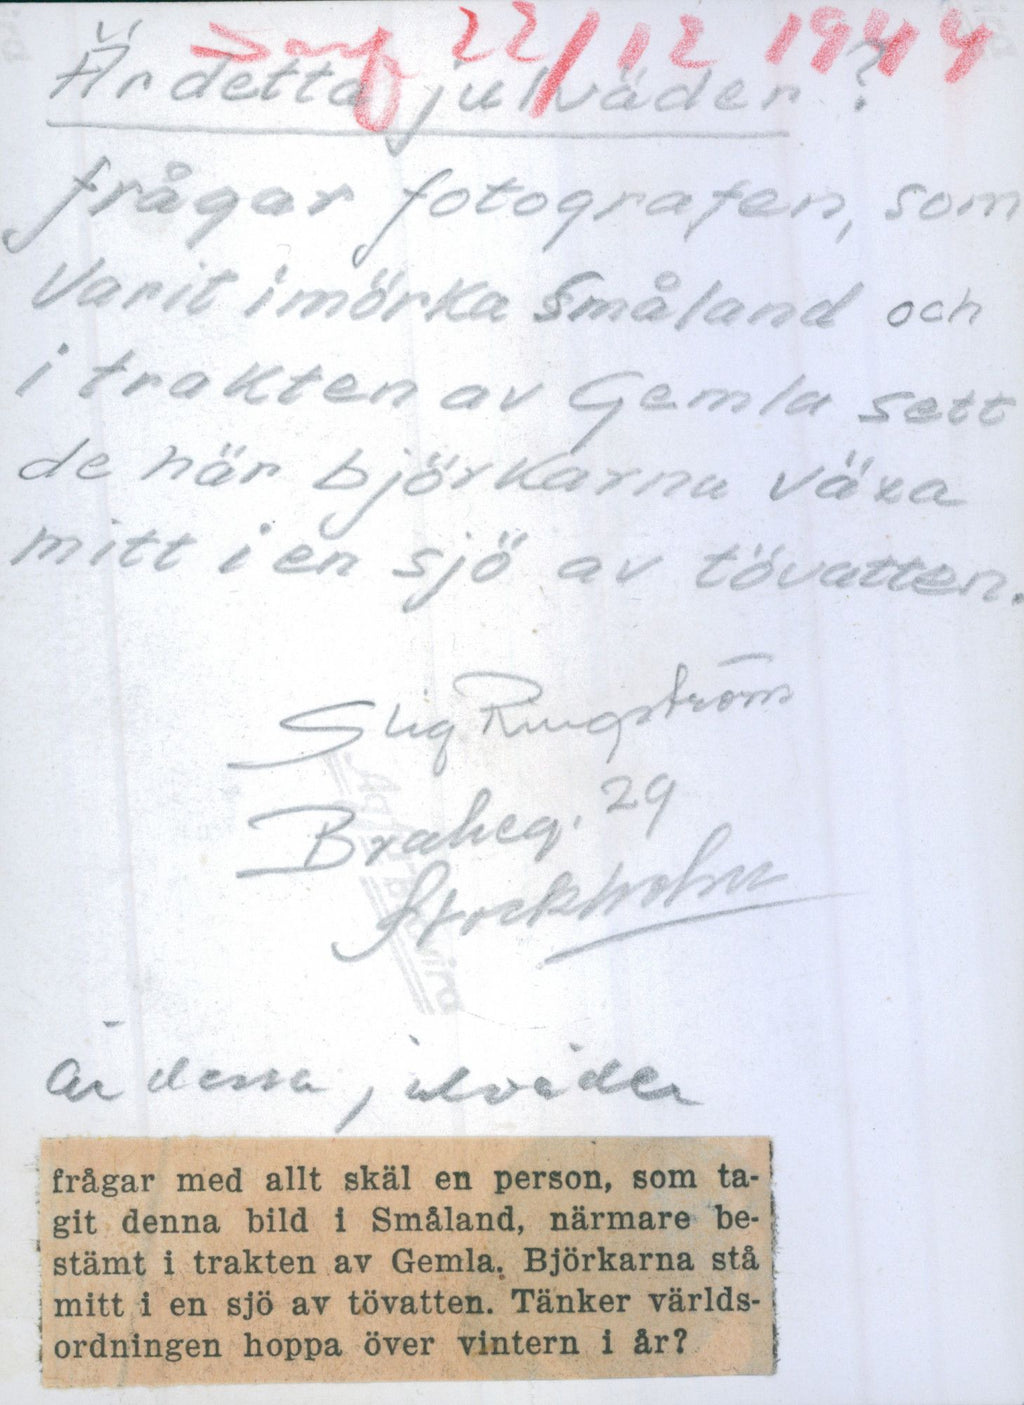 22/12 1944
Är detta julväder?
frågar fotografen, som
varit i mörka Småland och
i trakten av Gemla sett
de här björkarna växa
mitt i en sjö av tövatten.
Stig Ringström
Braheg. 29
Stockholm
Är julväder
frågar med allt skäl en person, som ta-
git denna bild i Småland, närmare be-
stämt i trakten av Gemla. Björkarna stå
mitt i en sjö av tövatten. Tänker världs-
ordningen hoppa över vintern i år?